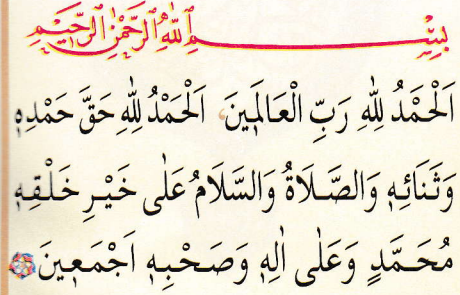 بِسْمِ اللّٰهِ الرَّحْمٰنِ الرَّحِيمِ
اَلْحَمْدُ لِلّٰهِ رَبِّ الْعَالَمٖينَ اَلْحَمْدُ لِلّٰهِ حَقَّ حَمْدِهٖ
وَثَنَائِهٖ وَالصَّلَاةُ وَالسَّلَامُ عَلٰى خَيْرِ خَلْقِهٖ
مُحَمَّدٍ وَعَلٰى اٰلِهٖ وَصَحْبِهٖ اَجْمَعٖينَ